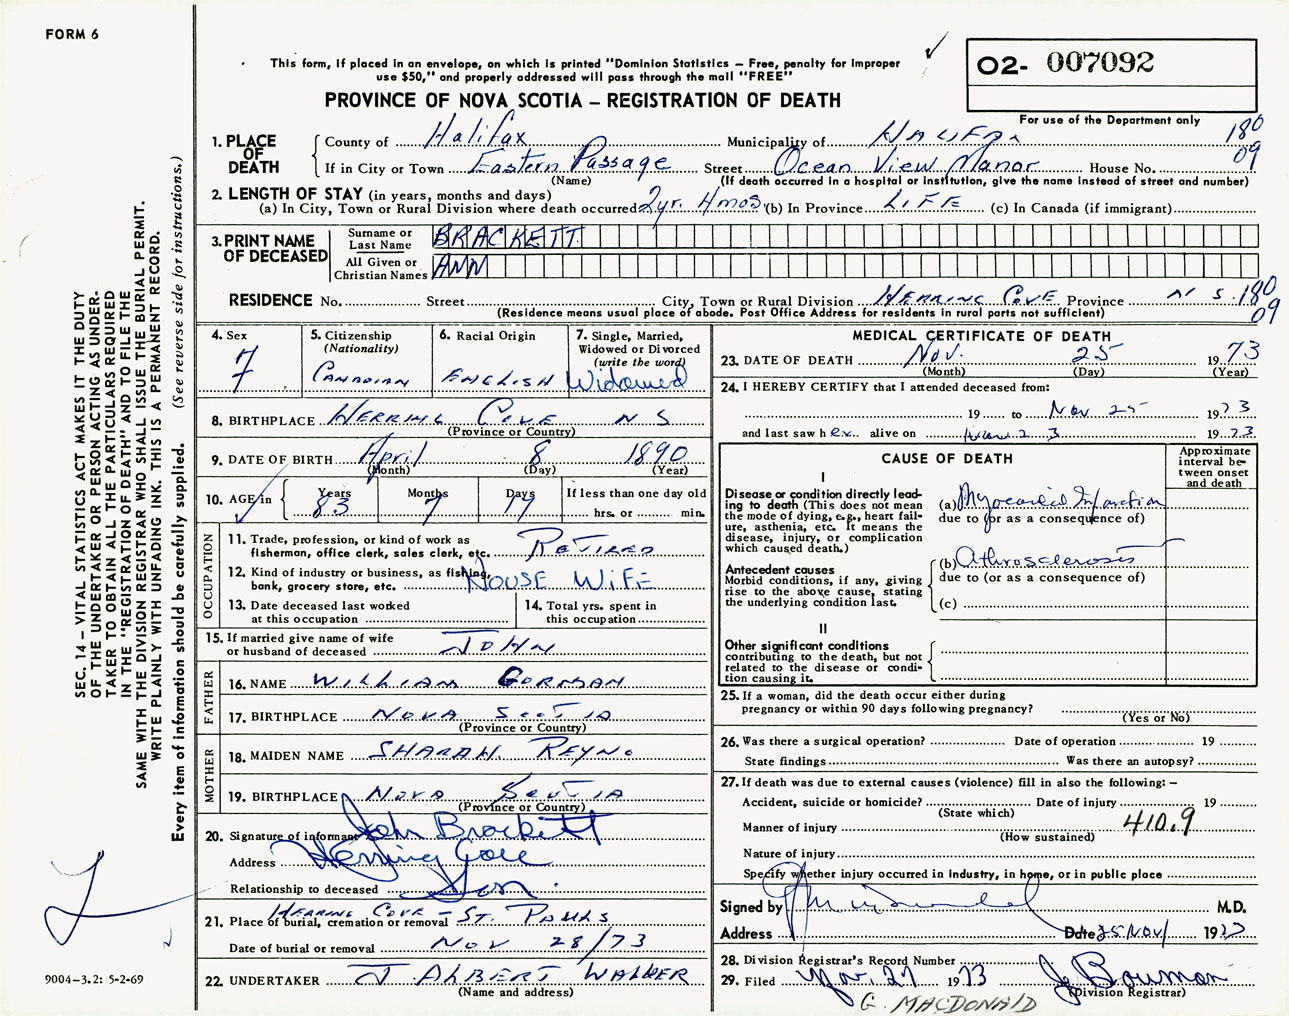 FORM 6
This form, if placed in an envelope, on which is printed "Dominion Statistics – Free, penalty for improper
use $50," and properly addressed will pass through the mail "FREE"
O2- 007092
PROVINCE OF NOVA SCOTIA – REGISTRATION OF DEATH
For use of the Department only
180
09
1. PLACE OF DEATH
County of Halifax Municipality of HALIFAX
If in City or Town Eastern Passage Street Ocean View Manor House No.
(Name) (If death occurred in a hospital or institution, give the name instead of street and number)
2. LENGTH OF STAY (in years, months and days)
(a) In City, Town or Rural Division where death occurred 2yr. 4mos (b) In Province LIFE (c) In Canada (if immigrant)
3. PRINT NAME OF DECEASED
Surname or Last Name BRACKETT
All Given or Christian Names ANN
RESIDENCE No. Street City, Town or Rural Division HERRING COVE Province N S 180
(Residence means usual place of abode. Post Office Address for residents in rural parts not sufficient) 09
4. Sex F
5. Citizenship (Nationality) CANADIAN
6. Racial Origin ENGLISH
7. Single, Married, Widowed or Divorced (write the word) Widowed
8. BIRTHPLACE HERRING COVE N S
(Province or Country)
9. DATE OF BIRTH April 8 1890
(Month) (Day) (Year)
10. AGE in Years 83 Months 7 Days 17 If less than one day old
hrs. or min.
OCCUPATION
11. Trade, profession, or kind of work as
fisherman, office clerk, sales clerk, etc. RETIRED
12. Kind of industry or business, as fishing,
bank, grocery store, etc. HOUSE WIFE
13. Date deceased last worked
at this occupation
14. Total yrs. spent in
this occupation
15. If married give name of wife
or husband of deceased JOHN
FATHER
16. NAME WILLIAM GORMAN
17. BIRTHPLACE NOVA SCOTIA
(Province or Country)
MOTHER
18. MAIDEN NAME SHARAH REYNO
19. BIRTHPLACE NOVA SCOTIA
(Province or Country)
20. Signature of informant John Brackett
Address Herring Cove
Relationship to deceased Son.
21. Place of burial, cremation or removal HERRING COVE – ST. PAULS
Date of burial or removal NOV 28/73
22. UNDERTAKER J ALBERT WALKER
(Name and address)
MEDICAL CERTIFICATE OF DEATH
23. DATE OF DEATH Nov. 25 1973
(Month) (Day) (Year)
24. I HEREBY CERTIFY that I attended deceased from:
19 to Nov 25 1973
and last saw her alive on 23 1973
CAUSE OF DEATH
Approximate interval between onset and death
I
Disease or condition directly leading
to death (This does not mean
the mode of dying, e.g., heart failure,
asthenia, etc. It means the
disease, injury, or complication
which caused death.)
(a) Myocardial Infarction
due to (or as a consequence of)
Antecedent causes
Morbid conditions, if any, giving
rise to the above cause, stating
the underlying condition last.
(b) Athrosclerosis
due to (or as a consequence of)
(c)
II
Other significant conditions
contributing to the death, but not
related to the disease or condition
causing it.
25. If a woman, did the death occur either during
pregnancy or within 90 days following pregnancy?
(Yes or No)
26. Was there a surgical operation? Date of operation 19
State findings Was there an autopsy?
27. If death was due to external causes (violence) fill in also the following: –
Accident, suicide or homicide? Date of injury 19
(State which)
Manner of injury 410.9
(How sustained)
Nature of injury
Specify whether injury occurred in industry, in home, or in public place
Signed by M.D.
Address Date 25 Nov 1973
28. Division Registrar's Record Number
29. Filed Nov. 27 1973 J Bowman
(Division Registrar)
G. MACDONALD
SEC. 14 – VITAL STATISTICS ACT MAKES IT THE DUTY
OF THE UNDERTAKER OR PERSON ACTING AS UNDER-
TAKER TO OBTAIN ALL THE PARTICULARS REQUIRED
IN THE "REGISTRATION OF DEATH" AND TO FILE THE
SAME WITH THE DIVISION REGISTRAR WHO SHALL ISSUE THE BURIAL PERMIT.
WRITE PLAINLY WITH UNFADING INK. THIS IS A PERMANENT RECORD.
Every item of information should be carefully supplied. (See reverse side for instructions.)
9004–3.2: 5-2-69